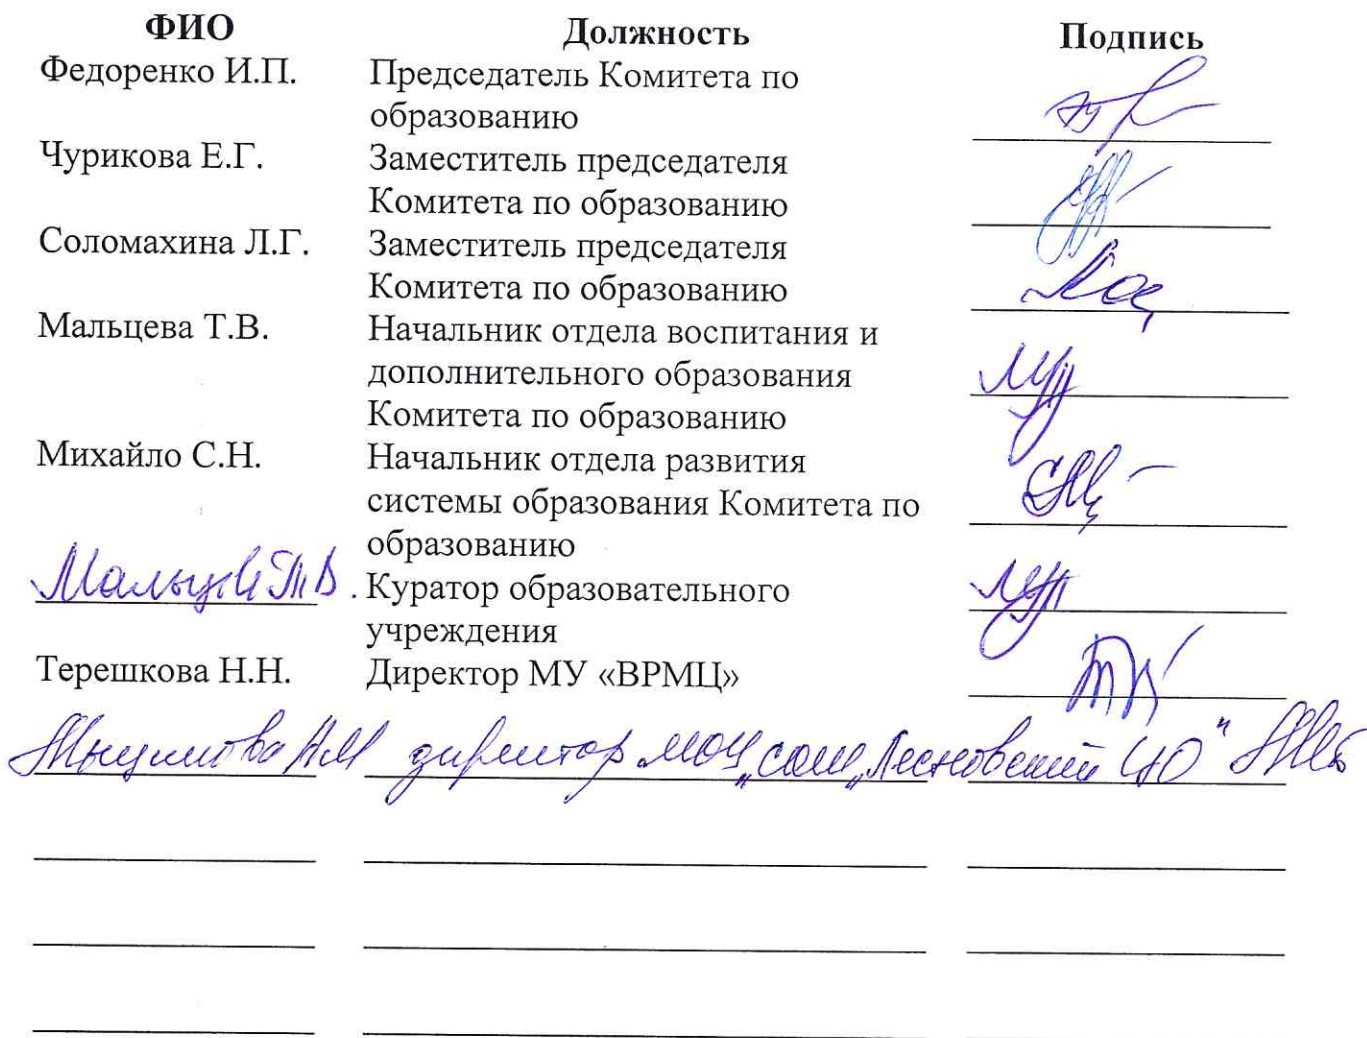 ФИО Должность Подпись
Федоренко И.П. Председатель Комитета по
образованию
Чурикова Е.Г. Заместитель председателя
Комитета по образованию
Соломахина Л.Г. Заместитель председателя
Комитета по образованию
Мальцева Т.В. Начальник отдела воспитания и
дополнительного образования
Комитета по образованию
Михайло С.Н. Начальник отдела развития
системы образования Комитета по
образованию
Мальцева Т.В. Куратор образовательного
учреждения
Терешкова Н.Н. Директор МУ «ВРМЦ»
директор МОУ „СОШ „Лесновский ЦО"